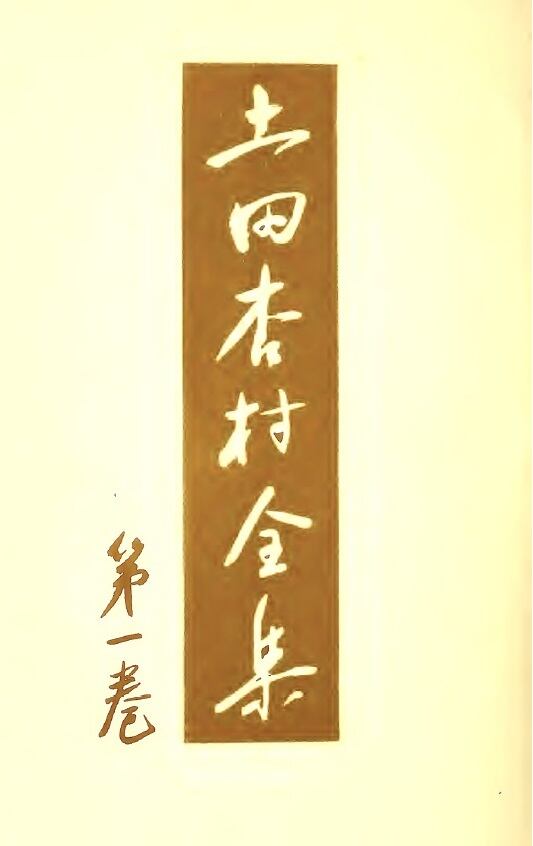 土田杏村全集
第一巻